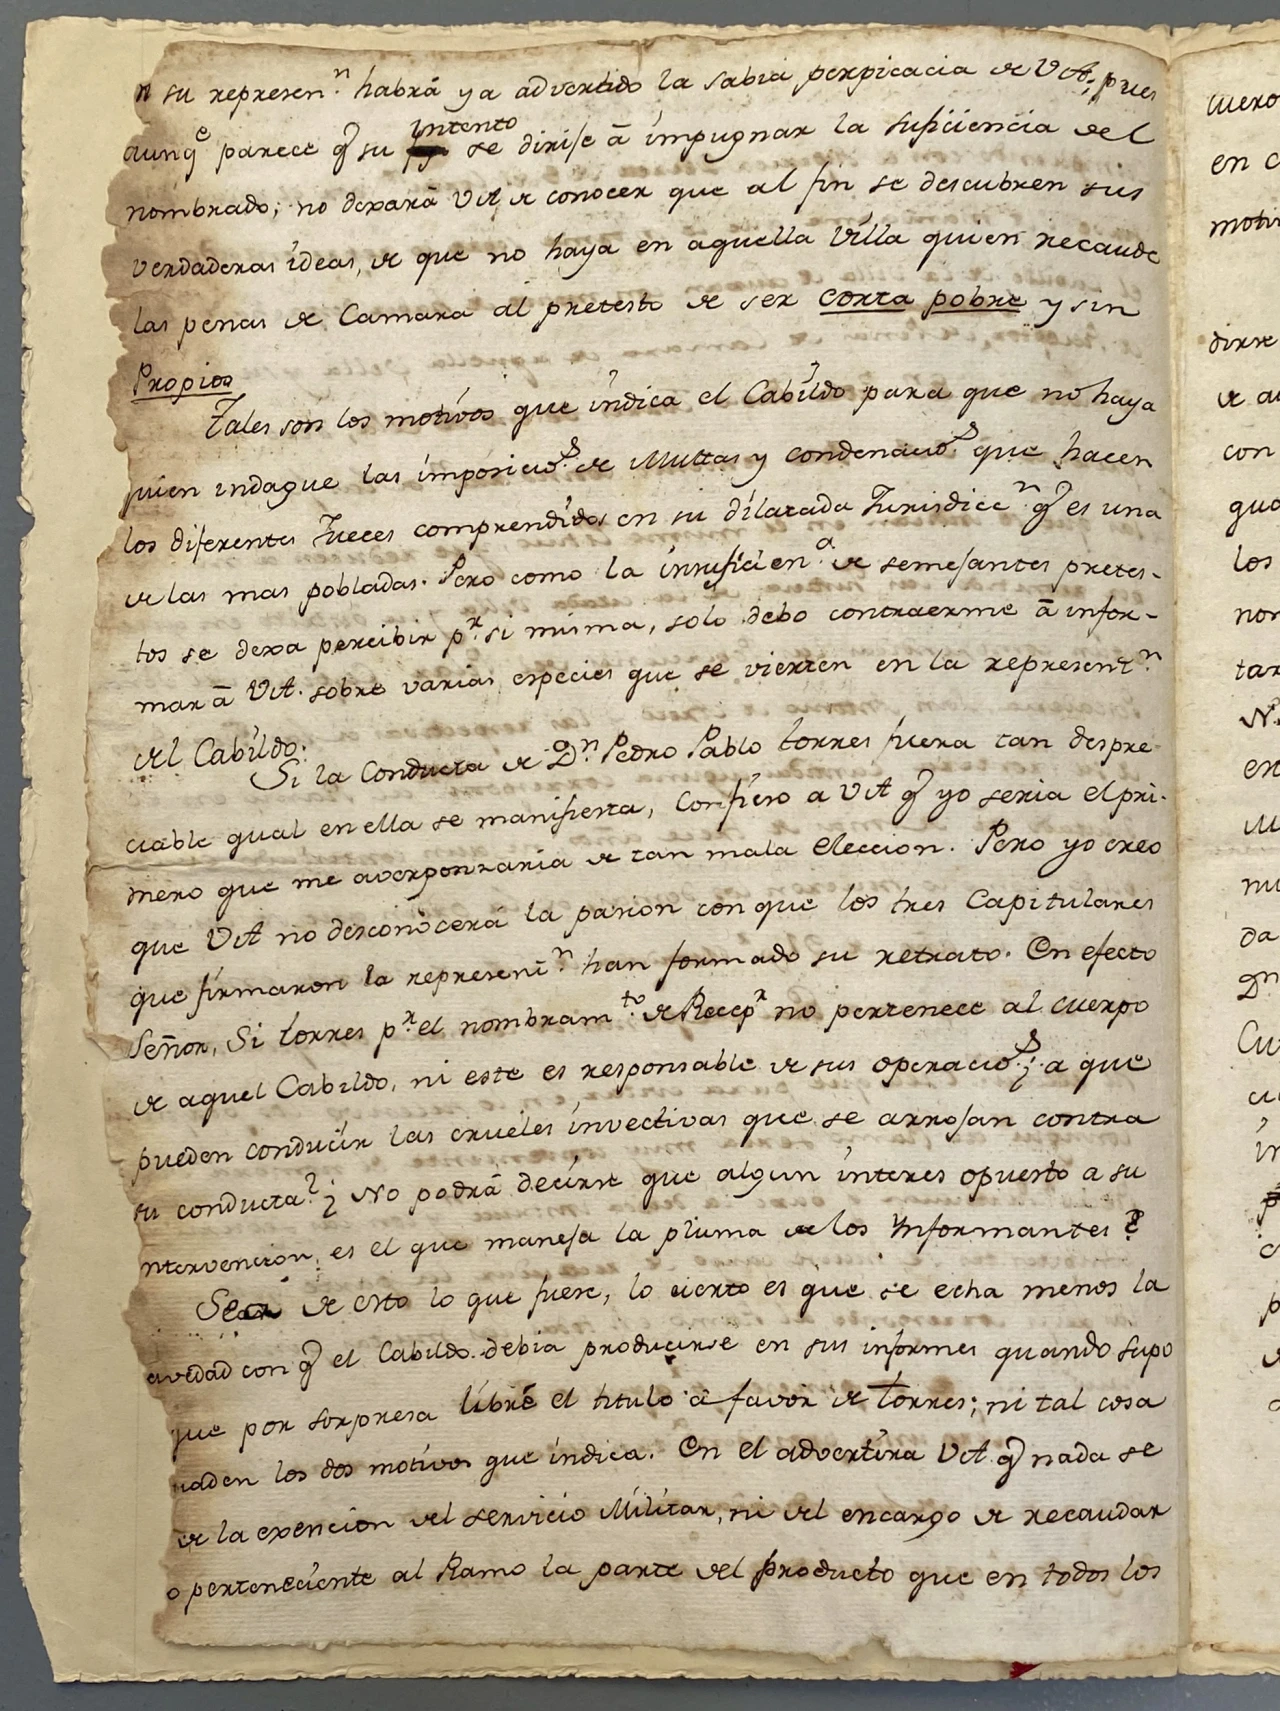 n su represen.n habrá ya advertido la sabia perpicacia de VA; pues
aunq.e parece q su intento se dirije á impugnar la suficiencia del
nombrado; no dexará VA de conocer que al fin se descubren sus
verdaderas ideas, de que no haya en aquella Villa quien recaude
las penas de Camara al pretesto de ser corta pobre y sin
Propios
Tales son los motivos que indica el Cabildo para que no haya
quien indague las imposicio.s de Multas y condenacio.s que hacen
los diferentes Jueces comprendidos en su dilatada Jurisdicc.n q es una
de las mas pobladas. Pero como la insuficien.a de semejantes pretes-
tos se dexa percibir p.r si misma, solo debo contraerme á infor-
mar á VA. sobre varias especies que se vierten en la represent.n
del Cabildo.
Si la Conducta de D.n Pedro Pablo torres fuera tan despre-
ciable qual en ella se manifiesta, confieso a VA q yo seria el pri-
mero que me avergonzaria de tan mala eleccion. Pero yo creo
que VA no desconocerá la pasion con que los tres Capitulares
que firmaron la represent.n han formado su retrato. En efecto
Señor, Si torres p.r el nombram.to de Recep.r no pertenece al cuerpo
de aquel Cabildo, ni este es responsable de sus operacio.s ¿a que
pueden conducir las crueles invectivas que se arrojan contra
su conducta? ¿No podrá decirse que algun interes opuesto a su
ntervencion, es el que maneja la pluma de los Informantes?
Sea de esto lo que fuere, lo cierto es que se echa menos la
avedad con q el Cabildo debia producirse en sus informes quando supo
que por sorpresa libré el titulo á favor de Torres; ni tal cosa
uaden los dos motivos que indica. En el advertira VA q nada se
de la exencion del servicio Militar, ni del encargo de recaudar
o perteneciente al Ramo la parte del producto que en todos los
cuero
en c
motiv
dirse
de au
con
qua
los
non
tar
N.
en
nu
da
Dn
Cu
in